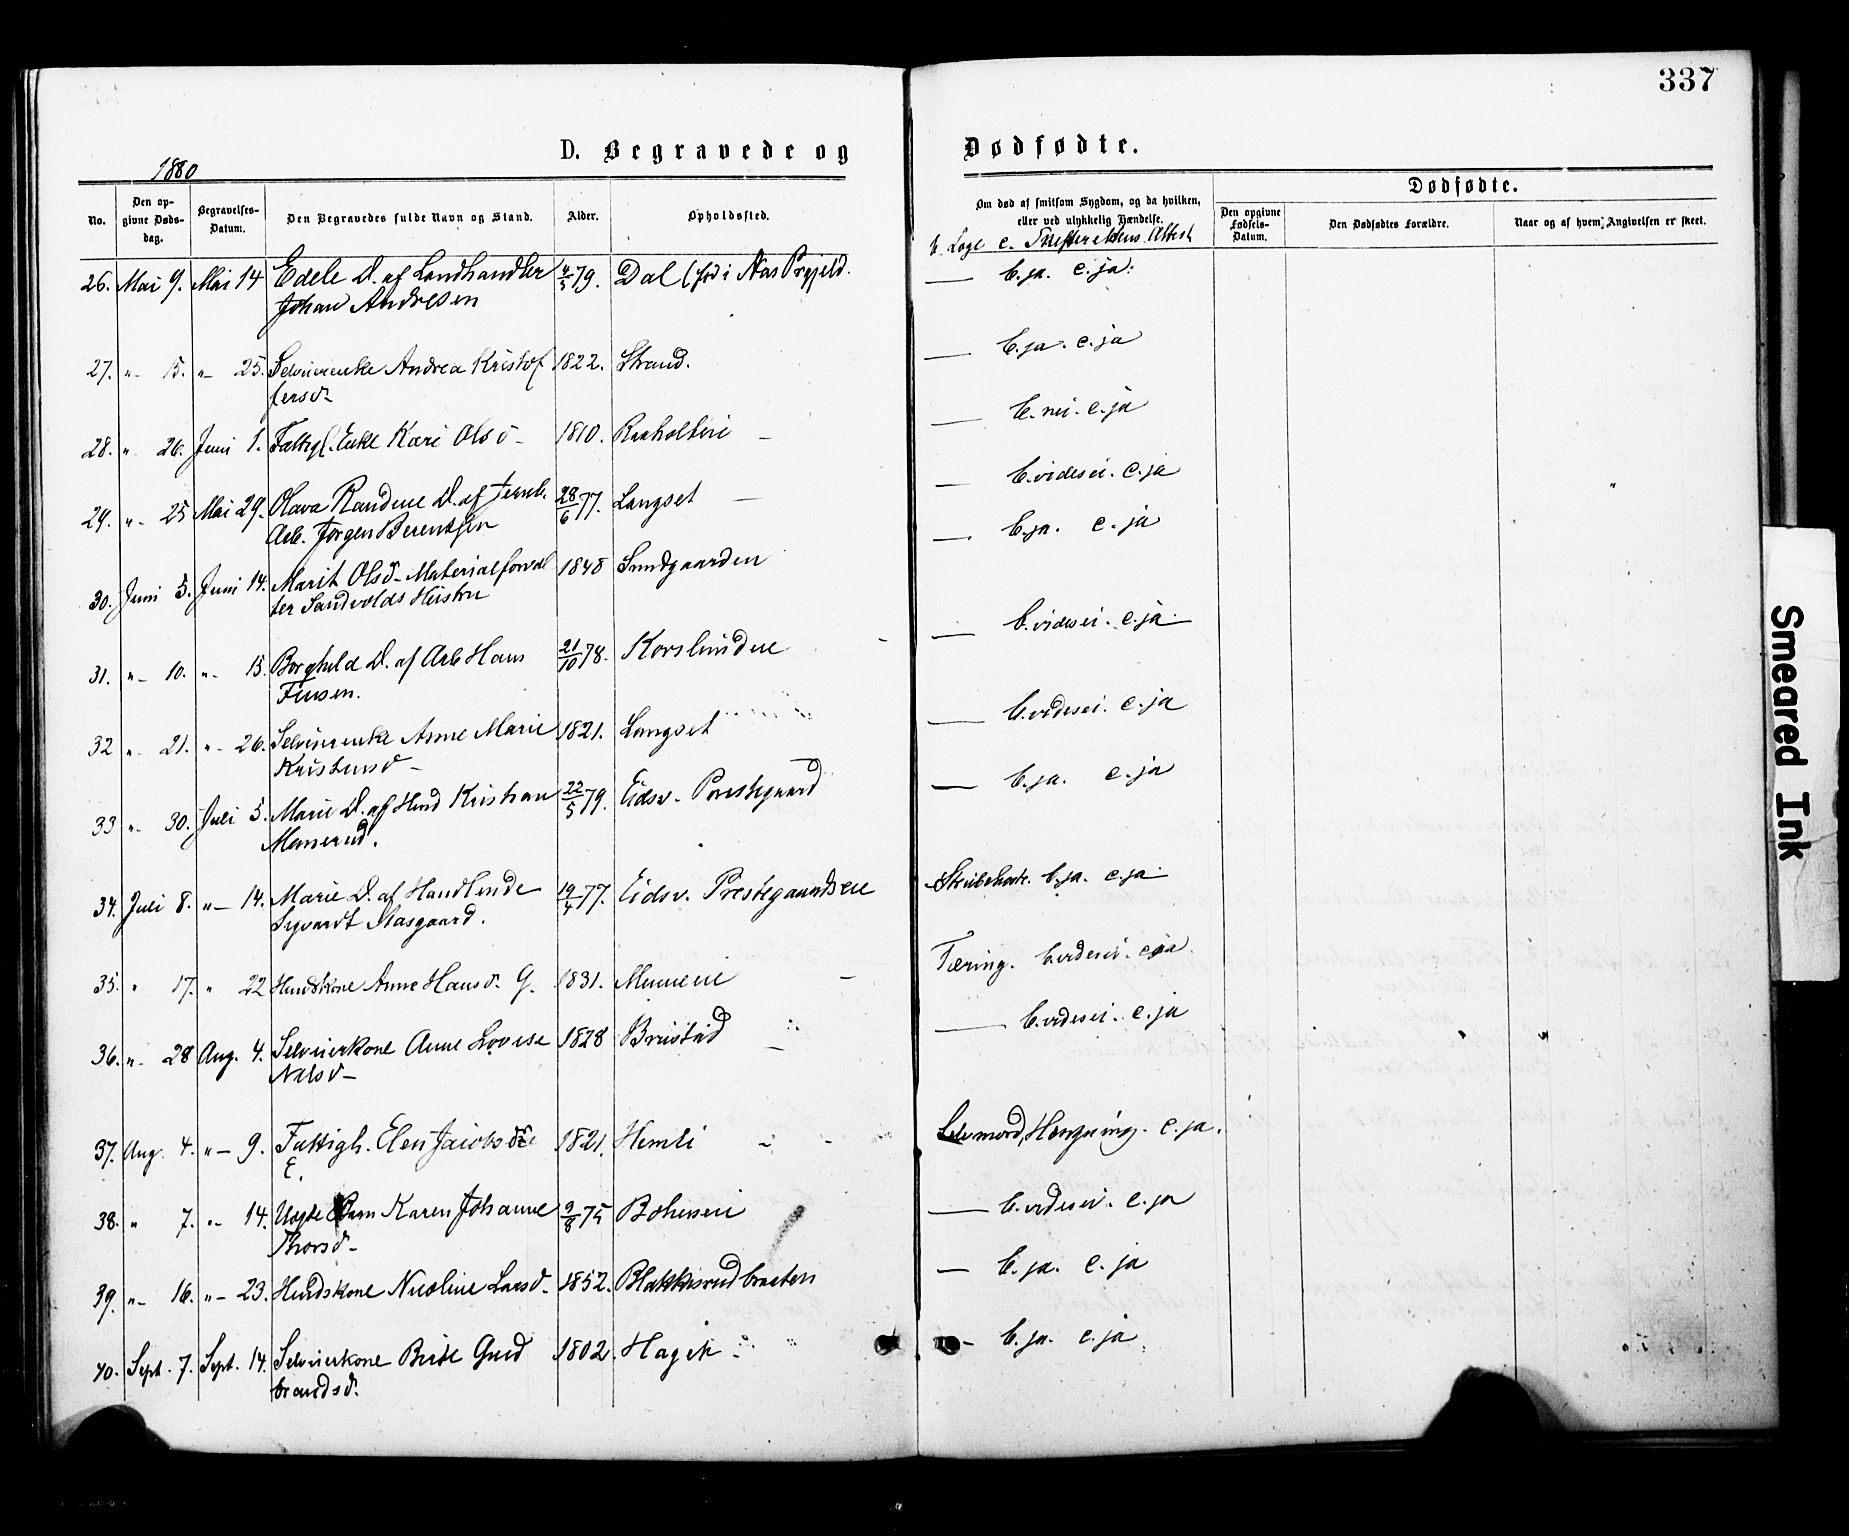 337
D. Begravede og Dødfødte.
1880
Dødfødte.
No.
Den opgivne Dødsdag.
Begravelses-Datum.
Den Begravedes fulde Navn og Stand.
Alder.
Opholdssted.
Om død af smitsom Sygdom, og da hvilken, eller ved ulykkelig Hændelse.
Den opgivne Fødsels-Datum.
Den Dødfødtes Forældre.
Naar og af hvem Angivelsen er skeet.
b. Læge c. Skifterettens Attest
26. Mai 9. Mai 14 Edele D. af Landhandler 79. Dal (fød i Næs Prgjeld. — b. ja. c. ja.
Johan Andresen
27. "- 15. "- 25. Selveierenke Andrea Kristof 1822. Strand. — b. ja. c. ja
fersd-
28. "- 26. Juni 1. Fattigl. Enke Kari Olsd- 1810. Raaholteie — b. nei. c. ja
29. "- 25 Mai 29. Olava Randine D. af Jernb. 28/6 77. Langset — b. videsei. c. ja
Arb. Jørgen Berentsen
30. Juni 5. Juni 14. Marit Olsd- Materialforval 1848 Sundgaarden — b. ja. c. ja
ter Sandvolds Hustru
31. "- 10. "- 15. Borghild D. af Arb Hans 21/10 78. Korslundene — b. videsei. c. ja.
Finsen.
32 "- 21. "- 26. Selveierenke Anne Marie 1821. Langset — b. videsei. c. ja
Kristensd-
33 "- 30. Juli 5. Marie D. af Husd Kristian 22/5 79. Eidsv. Prestegaard — b. ja. c. ja
Manerud.
34. Juli 8. "- 14. Marie D. af Handlende 19/4 77. Eidsv. Prestegaardseie Strubehoste. b. ja. c. ja.
Sigvardt Aasgaard.
35. " 17. " 22 Husdskone Anne Hansd. G. 1831. Minneeie Tæring. b. videsei. c. ja
36. "- 28 Aug. 4. Selveierkone Anne Lovise 1828 Brustad — b. videsei. c. ja
Nilsd-
37. Aug. 4. "- 9. Fattigh. Elen Jacobsd 1821. Hemli Selvmord, Hængning. c. ja.
E.
38. " 7. "- 14. Uægte Barn Karen Johanne 9/8 75 — b. videsei. c. ja
Thorsd-
39. "- 16. "- 23. Husdskone Nicoline Larsd- 1852. Blakkisrudbraaten — b. ja. c. ja
40. Sept. 7. Sept. 14. Selveierkone Birte Gud 1802. — b. ja. c. ja
brandsd.
Smeared Ink